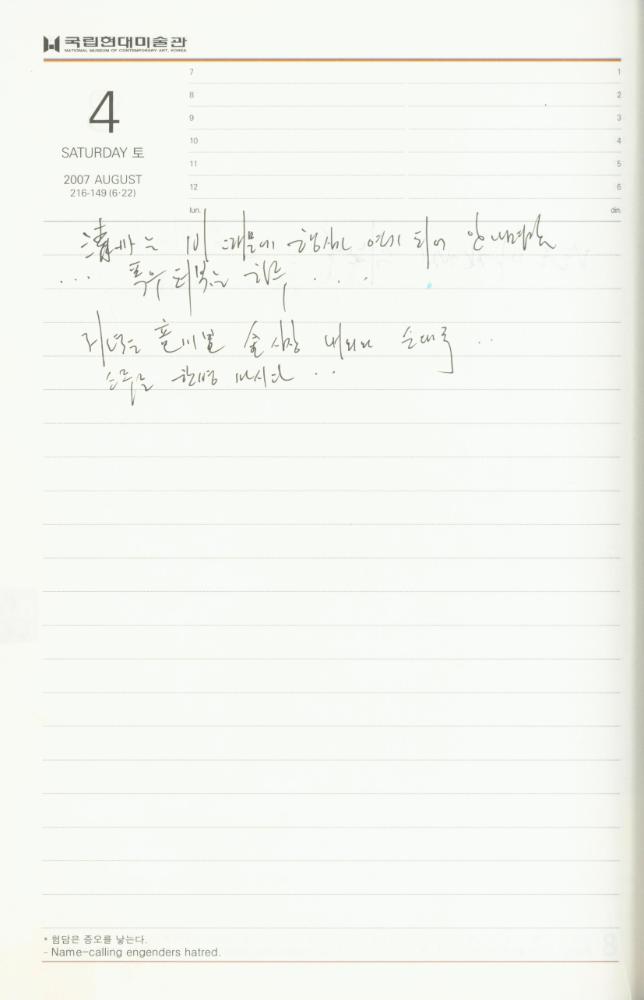 국립현대미술관
NATIONAL MUSEUM OF CONTEMPORARY ART, KOREA
4
SATURDAY 토
2007 AUGUST
216-149 (6·22)
7
8
9
10
11
12
lun.
1
2
3
4
5
6
din.
는 비 때문에 행사 연기 되어 안
... 하루 ....
저녁은 술 사장 내외와 순대국 ..
소주를 한병 마시다 ...
* 험담은 증오를 낳는다.
- Name-calling engenders hatred.